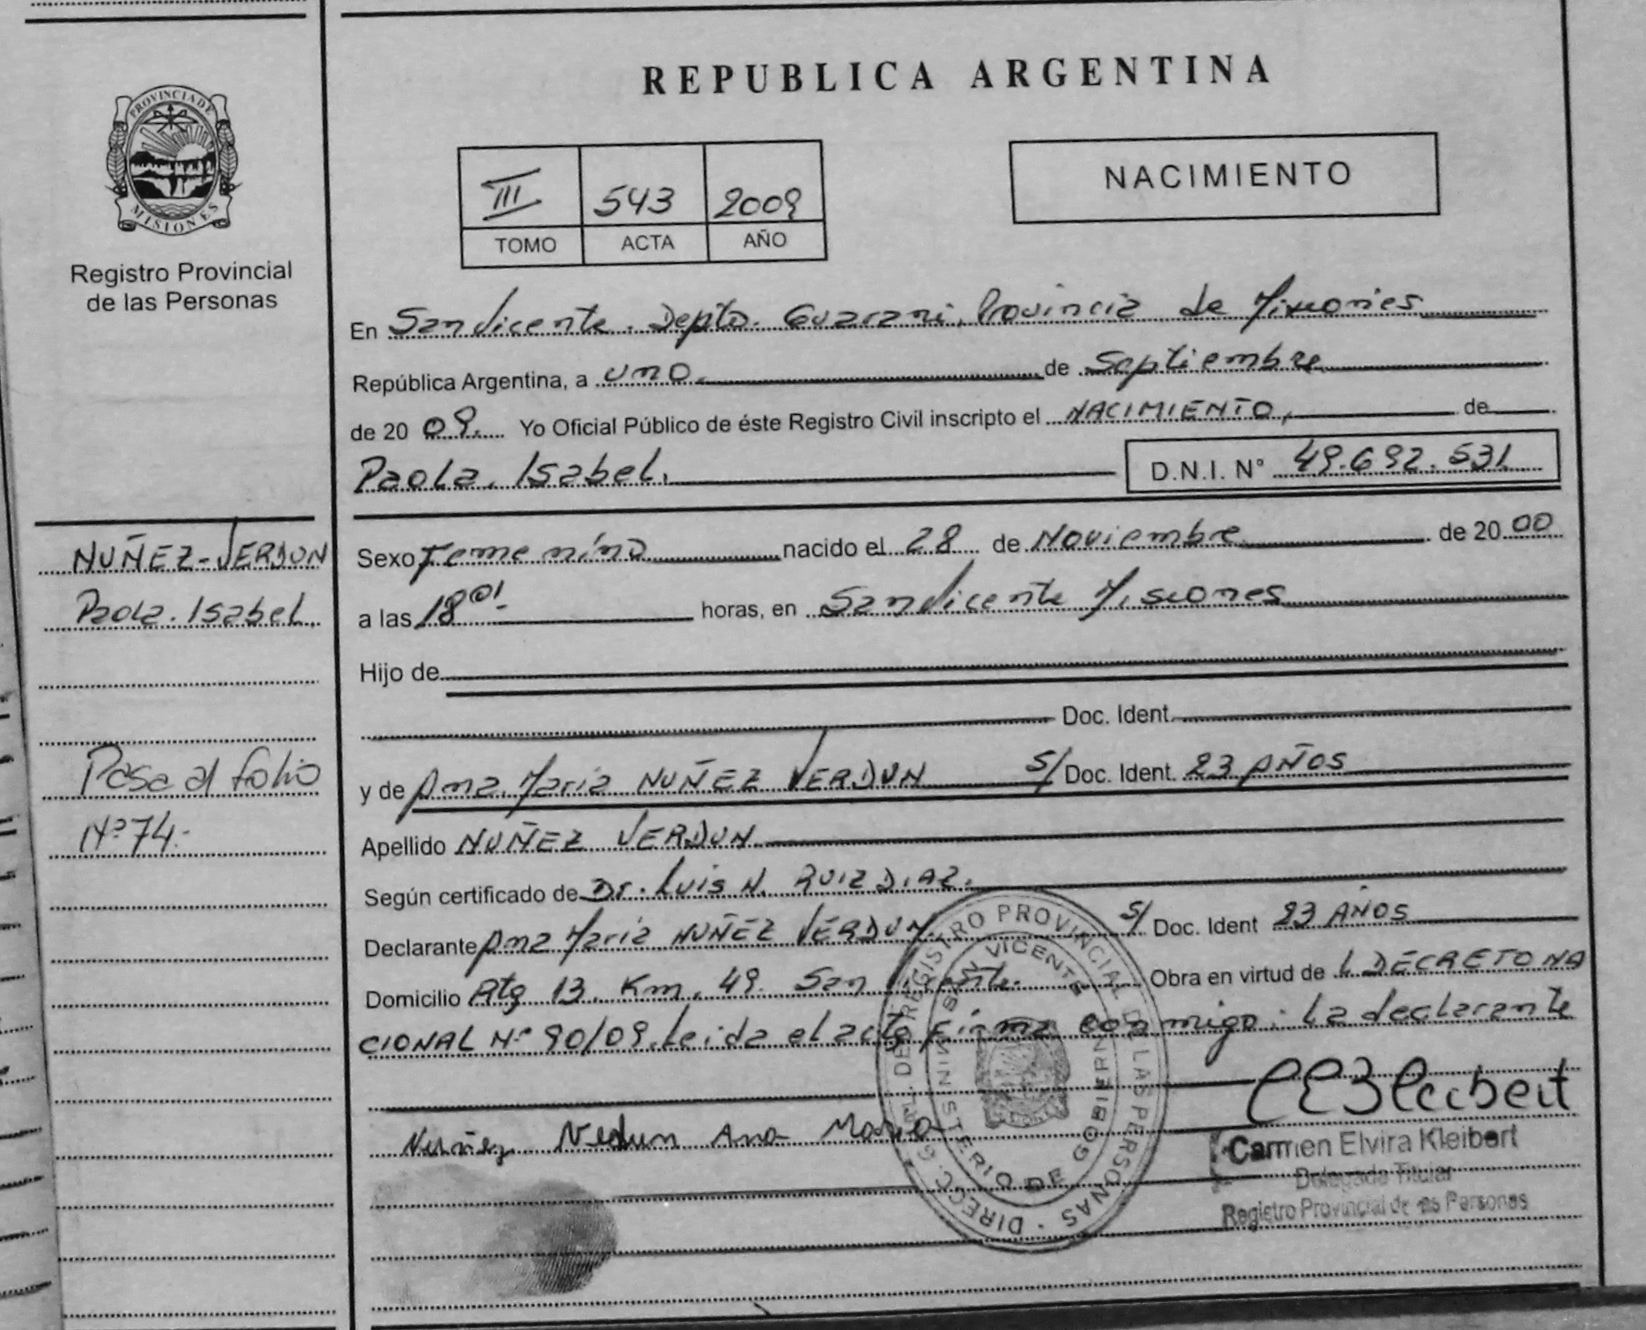 PROVINCIA DE
MISIONES
Registro Provincial
de las Personas
NUÑEZ-VERDUN
Paola. Isabel.
Pasa al folio
Nº 74.-
REPUBLICA ARGENTINA
III 543 2009
TOMO ACTA AÑO
NACIMIENTO
En San Vicente. Depto. Guarani. Provincia de Misiones
República Argentina, a uno. de Septiembre
de 20 09. Yo Oficial Público de éste Registro Civil inscripto el NACIMIENTO, de
Paola. Isabel. D.N.I. N° 49.692.531
Sexo Femenino nacido el 28 de Noviembre de 20 00
a las 18 01'- horas, en San Vicente Misiones
Hijo de
Doc. Ident.
y de Ana. Maria NUÑEZ VERDUN S/ Doc. Ident. 23 AÑOS
Apellido NUÑEZ VERDUN
Según certificado de Dr. Luis N. RUIZ DIAZ.
Declarante Ana Maria NUÑEZ VERDUN. S/ Doc. Ident 23 AÑOS
Domicilio Rtg 13. Km. 49. San Vicente. Obra en virtud de L DECRETO NA
CIONAL Nº 90/09. Leida el acta firma conmigo: La declarante
Nuñez Vedun Ana Maria
Carmen Elvira Kleibert
Delegada Titular
Registro Provincial de las Personas
DIRECC. GRAL. DEL REGISTRO PROVINCIAL DE LAS PERSONAS
MINISTERIO DE GOBIERNO
SAN VICENTE